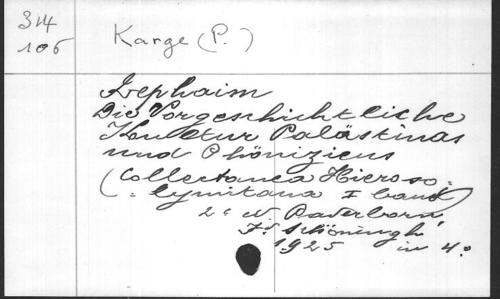 314
106
Karge (P.)
Rephaim
Die Vorgeschichtliche
Kultur Palästinas
und Phöniziens
(Collectanea Hieroso-
lymitana I band)
2e N. Paderborn
Fd Schöningh
1925 in 4o